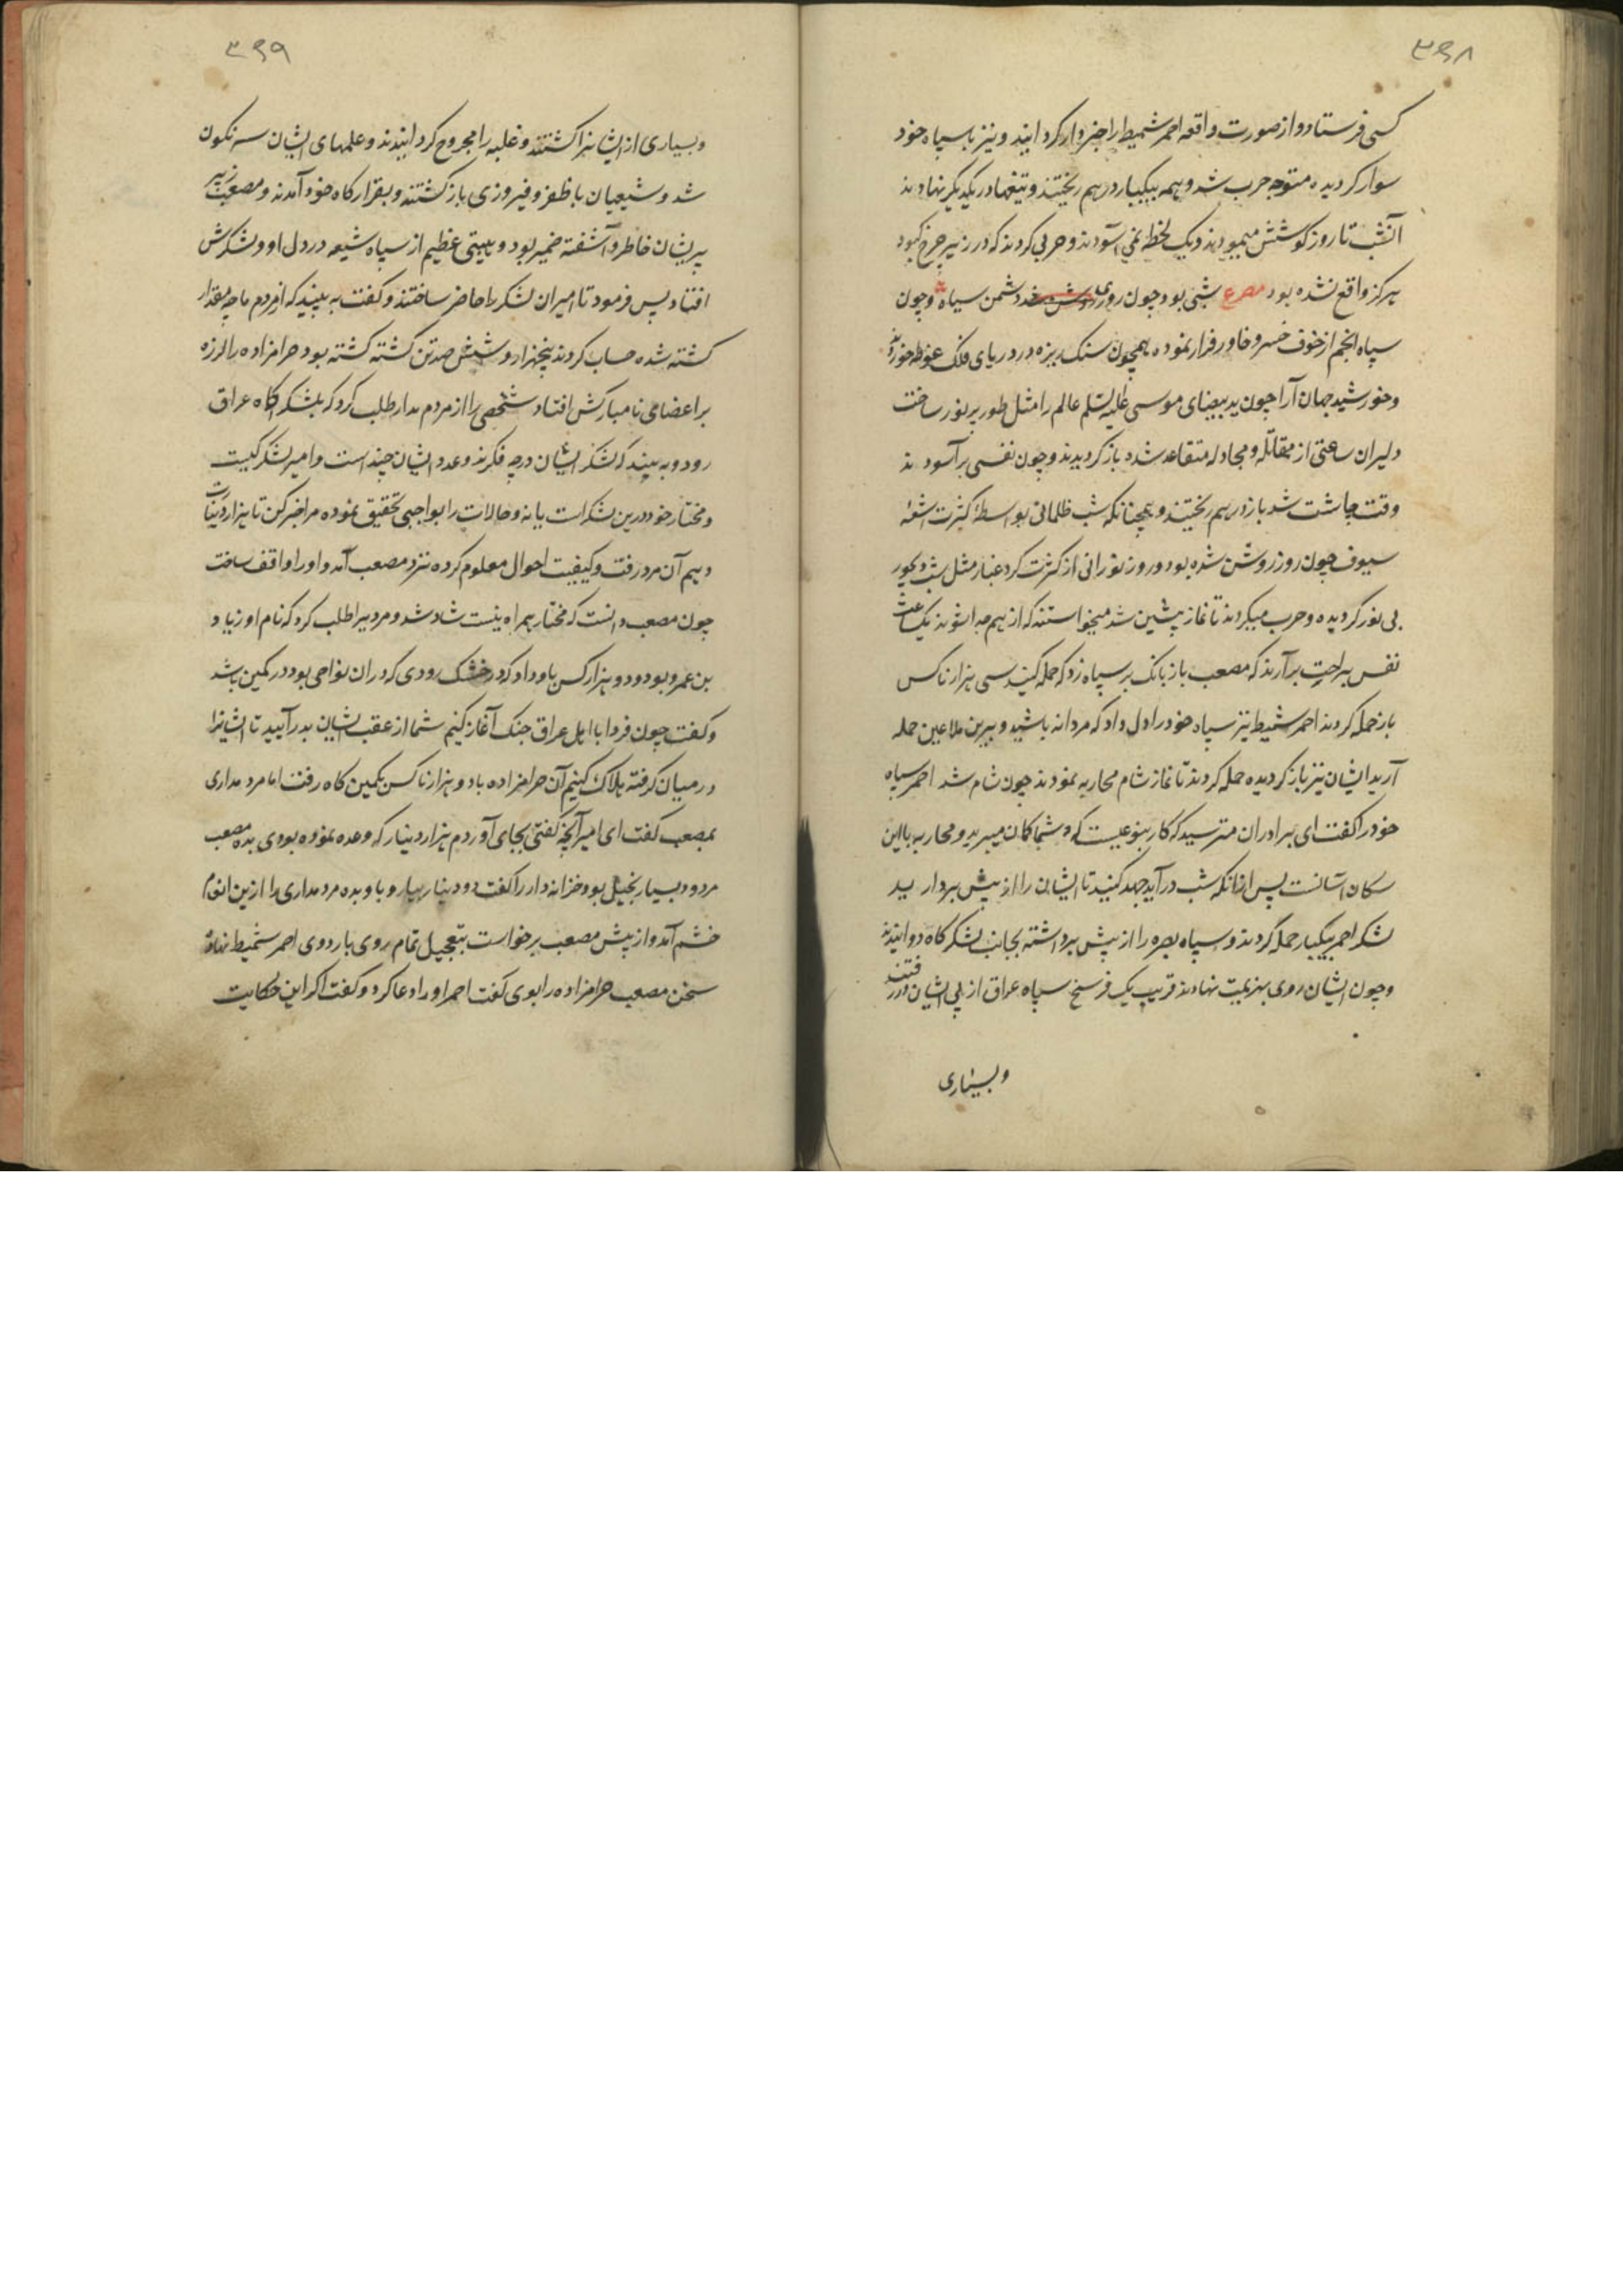 ۳۹۸
کسی فرستاد و از صورت واقعه احمر شمیط را خبردار کردانید و نیز با سپاه خود
سوار کردیده متوجه حرب شد و همه بیکبار در هم ریختند و تیغها در یکدیکر نهادند
آنشب تا روز کوشش مینمودند و یک لحظه نمی آسودند و حربی کردند که در زیر چرخ کبود
هرکز واقع نشده بود مصرع شبی بود چون روی دشمن سیاه و چون
سپاه انجم از خوف خسرو خاور فرار نموده همچون سنک ریزه در دریای فلک غوطه خوردند
و خورشید جهان آرا چون ید بیضای موسی علیه السلم عالم را مثل طور پر نور ساخت
دلیران ساعتی از مقاتله و مجادله متقاعد شده باز کردیدند و چون نفسی بر آسودند
وقت چاشت شد باز در هم ریختند و همچنانکه شب ظلمانی بواسطهٔ کثرت اشعهٔ
سیوف چون روز روشن شده بود و روز نورانی از کثرت کرد و غبار مثل شب دیجور
بی نور کردیده و حرب میکردند تا نماز پیشین شد میخواستند که از هم جدا شوند یک ساعت
نفس براحت برآرند که مصعب باز بانک بر سپاه زد که حمله کنید سی هزار ناکس
باز حمله کردند احمر شمیط نیز سپاه خود را دل داد که مردانه باشید و برین ملاعین حمله
آرید ایشان نیز باز کردیده حمله کردند تا نماز شام محاربه نمودند چون شام شد احمر سپاه
خود را کفت ای برادران مترسید که کار بنوعیست که شما کمان میبرید و محاربه با این
سکان آسانست پس از آنکه شب درآید جهد کنید تا ایشان را از پیش بردارید
لشکر احمر بیکبار حمله کردند و سپاه بصره را از پیش برداشته بجانب لشکرکاه دوانیدند
و چون ایشان روی بهزیمت نهادند قریب یک فرسخ سپاه عراق از پی ایشان در رفتند
و بسیاری
۳۹۹
و بسیاری از ایشانرا کشتند و غلبه را مجروح کردانیدند و علمهای ایشان سرنکون
شد و شیعیان با ظفر و فیروزی باز کشتند و بقرارکاه خود آمدند و مصعب زبیر
پریشان خاطر و آشفته ضمیر بود و هیبتی عظیم از سپاه شیعه در دل او و لشکرش
افتاد پس فرمود تا امیران لشکر را حاضر ساختند و کفت به بینید که از مردم ما چه مقدار
کشته شده حساب کردند پنجهزار و شش صد تن کشته کشته بود حرامزاده را لرزه
بر اعضای نامبارکش افتاد شخصی را از مردم مدار طلب کرد که بلشکرکاه عراق
رود و به بیند که لشکر ایشان در چه فکرند و عدد ایشان چند است و امیر لشکر کیست
و مختار خود درین لشکر است یا نه و حالات را بواجبی تحقیق نموده مرا خبر کن تا هزار دینارت
دهیم آن مرد رفت و کیفیت احوال معلوم کرده نزد مصعب آمد و او را واقف ساخت
چون مصعب دانست که مختار همراه نیست شاد شد و مردیرا طلب کرد که نام او زیاد
بن عمرو بود و دو هزار کس باو داد که در خشک رودی که دران نواحی بود در کمین باشد
و کفت چون فردا با اهل عراق جنک آغاز کنیم شما از عقب ایشان بدر آیید تا ایشانرا
در میان کرفته هلاک کنیم آن حرامزاده با دو هزار ناکس بکمین کاه رفت اما مرد مداری
بمصعب کفت ای امیر آنچه کفتی بجای آوردم هزار دینار که وعده نموده بودی بده مصعب
مردود بسیار بخیل بود خزانه دار را کفت دو دینار بیار و باو بده مرد مداری را ازین انعام
خشم آمد و از پیش مصعب برخواست بتعجیل تمام روی باردوی احمر شمیط نهاد
سخن مصعب حرامزاده را بوی کفت احمر او را دعا کرد و کفت اکر این حکایت